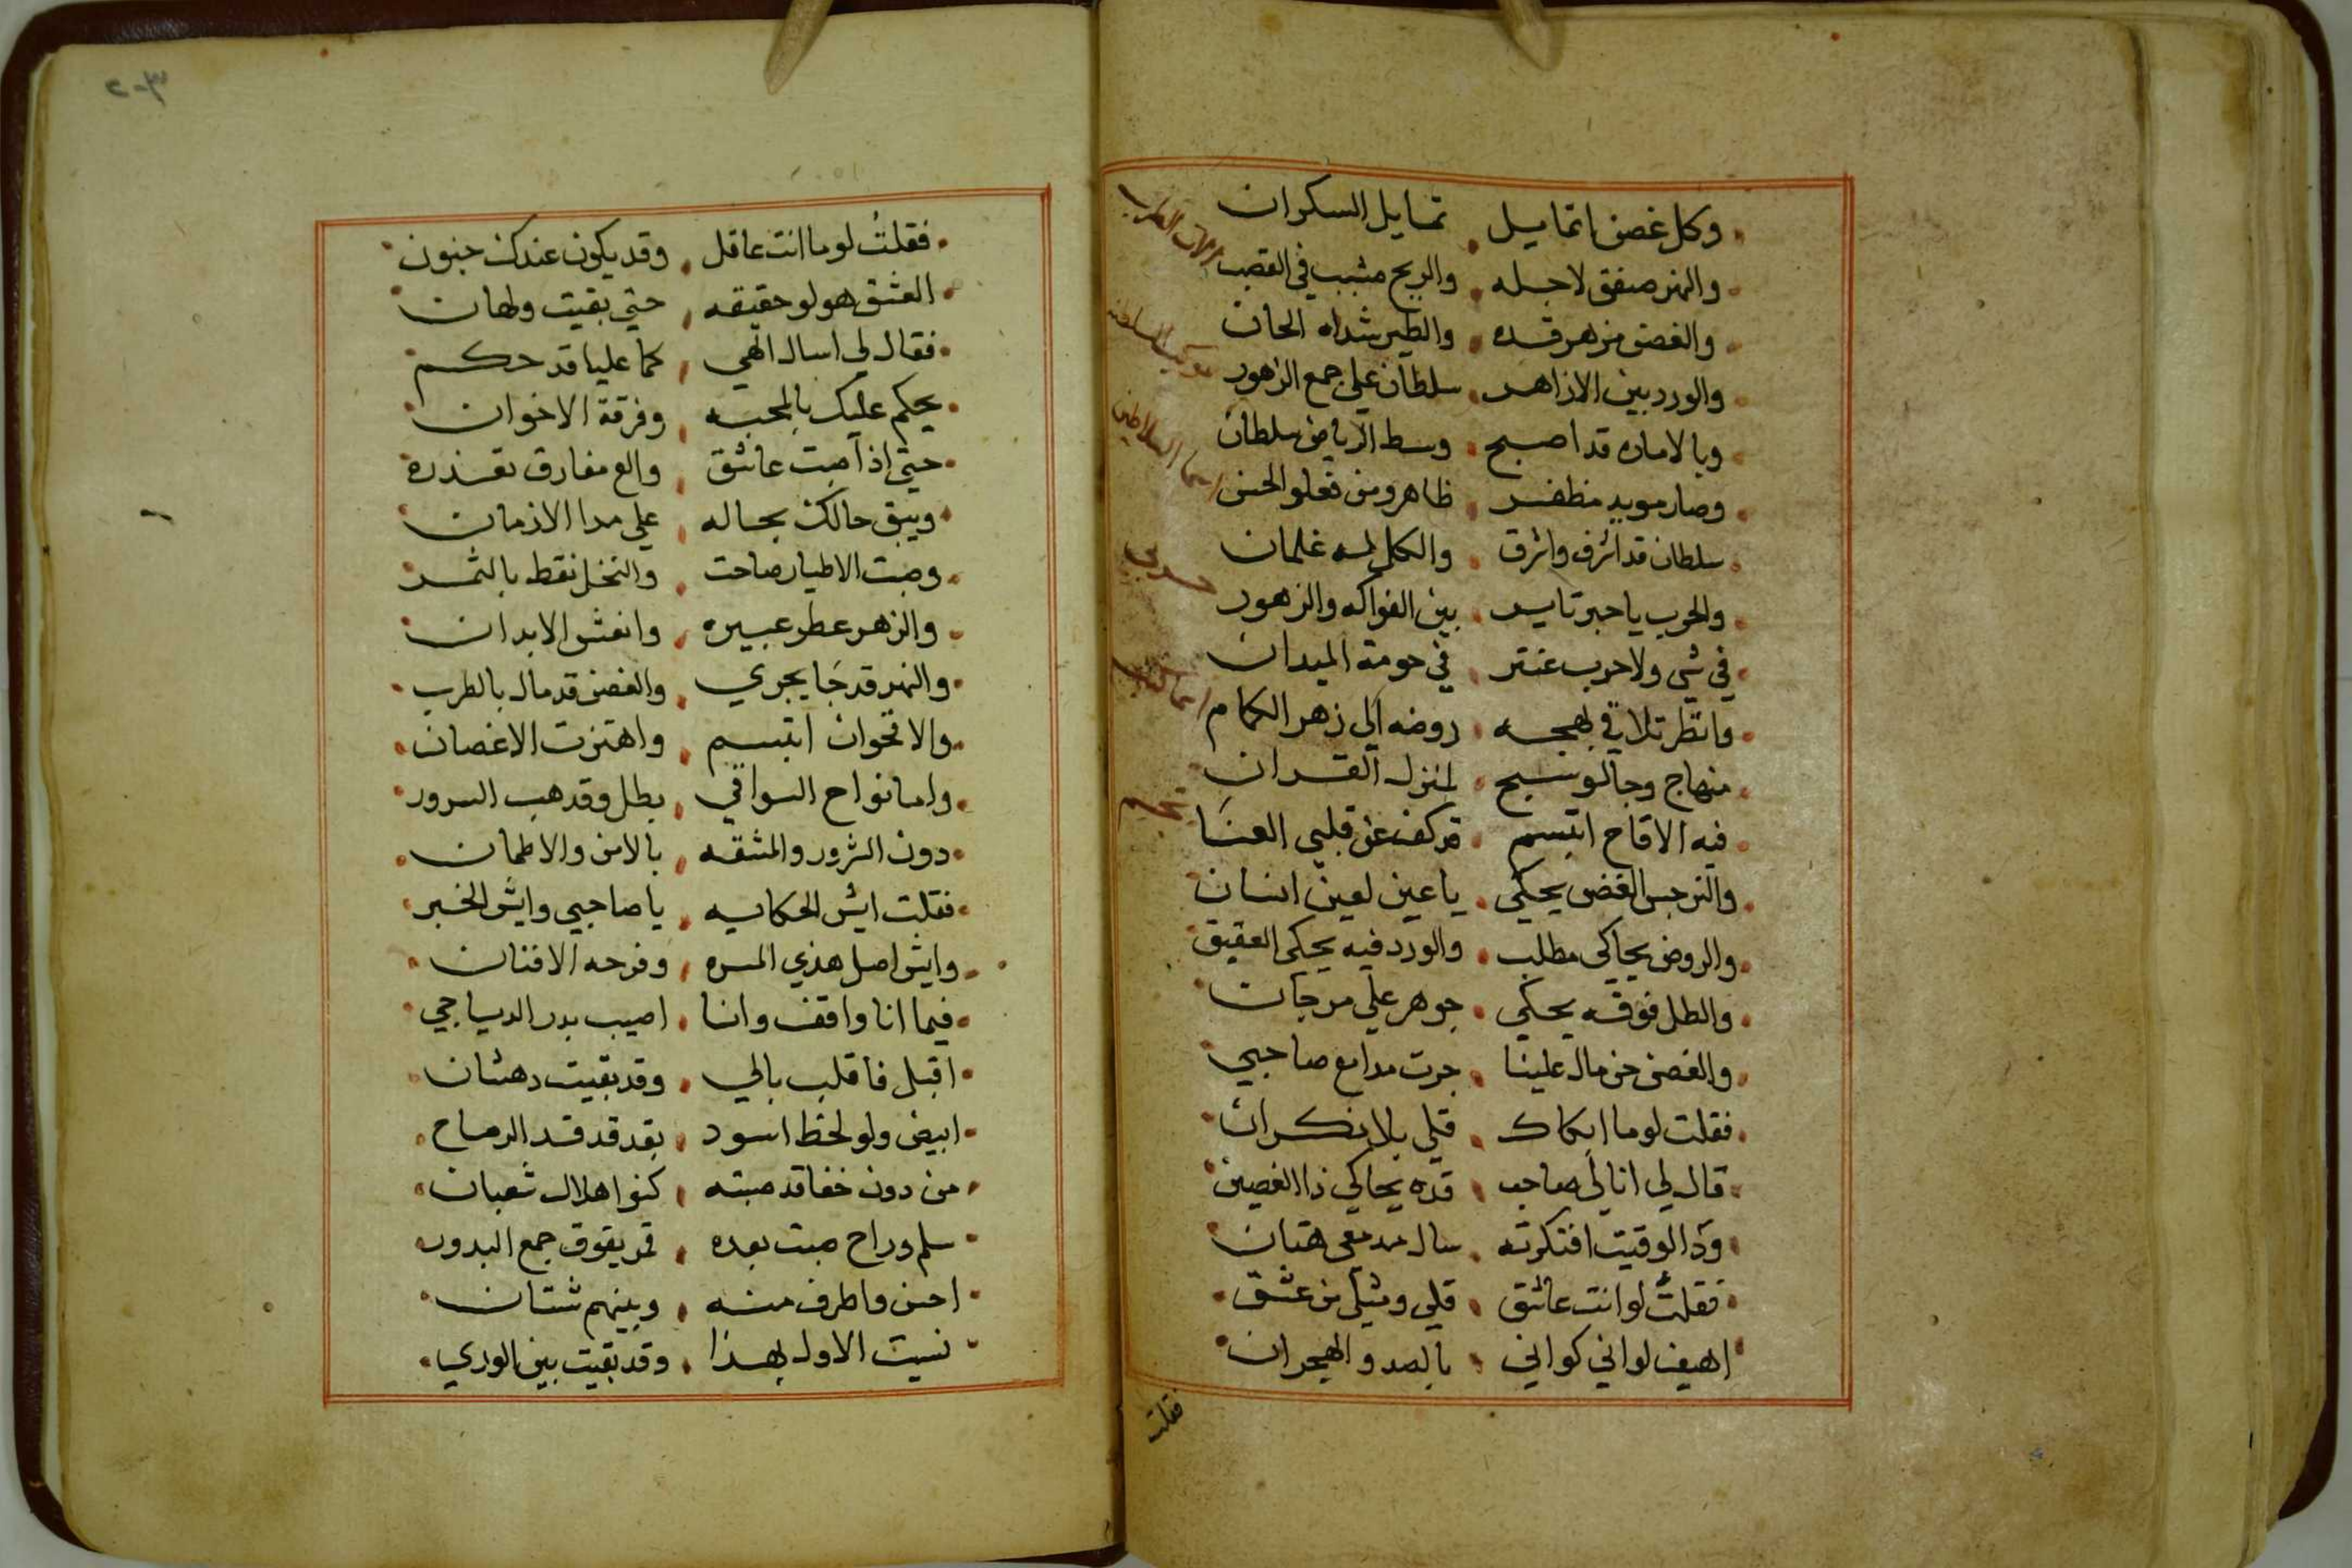 وكل غصن اتمايل تمايل السكران
والنهر صفق لاجله والريح مشبب في القصب
والغصن من هز قده والطير شداه الحان
والورد بين الازاهر سلطان علي جمع الزهور
وبالاماره قد اصبح وسط الرياض سلطان
وصار مويد مظفر ظاهر ومن فعلو الحسن
سلطان قد اشرف واشرق والكل له غلمان
والحرب يا حبرتا يسر بين الفواكه والزهور
في شي ولا حرب عنتر في حومة الميدان
فانظر تلاقي بهجه روضه الي زهر الكمام
منهاج وجا لو سبح لمنزل القران
فيه الاقاح ابتسم قد كف عن قلبي العنا
والنرجس الغض يحكي يا عين لعين انسان
والروض يحاكي مطلب والورد فيه يحكي العقيق
والطل فوقه يحكي جوهر علي مرجان
والغصن حن مال علينا جرت مدامع صاحبي
فقلت لو ما ابكاك قلي بلا نكران
قال لي انا لي صاحب قده يحاكي ذا الغصين
وذا الوقيت افتكرته سال مدمعي هتان
فقلت لو انت عاشق قلي ومثلي من عشق
اهيف لو اني كواني بالصد والهجران
فقلت
الات الطرب
موكب السلطنه
اسما السلاطين
حربي
اسما الكتب
فقلت لو ما انت عاقل وقد يكون عندك جنون
العشق هو لو حقيقه حتي بقيت ولهان
فقال لي اسال الهي كما عليا قد حكم
يحكم عليك بالمحبه وفرقة الاخوان
حتي اذا صبت عاشق والع مفارق تعذره
ويبقي حالك بحاله علي مدا الازمان
وصبت الاطيار صاحت والنخل نقط بالثمر
والزهر عطر عبيره وانعش الابدان
والنهر قد جا يجري والغصن قد مال بالطرب
والاقحوان ابتسم واهتزت الاغصان
واما نواح السواقي بطل وقد هب السرور
دون الشرور والمشقه بالامن والاطمان
فقلت ايش الحكايه يا صاحبي وايش الخبر
وايش اصل هذي المسره وفرحه الافنان
فيما انا واقف وانا اصيب بدر الدياجي
اقبل فاقلب بالي وقد بقيت دهشان
ابيض ولو لحظ اسود بقد قد قد الرماح
من دون خفا قد صبته كنو اهلال شعبان
سلم وراح صبت بعده قمر يفوق جمع البدور
احسن واظرف منه وبينهم شتان
نسيت الاول بهذا وقد بقيت بين الوري